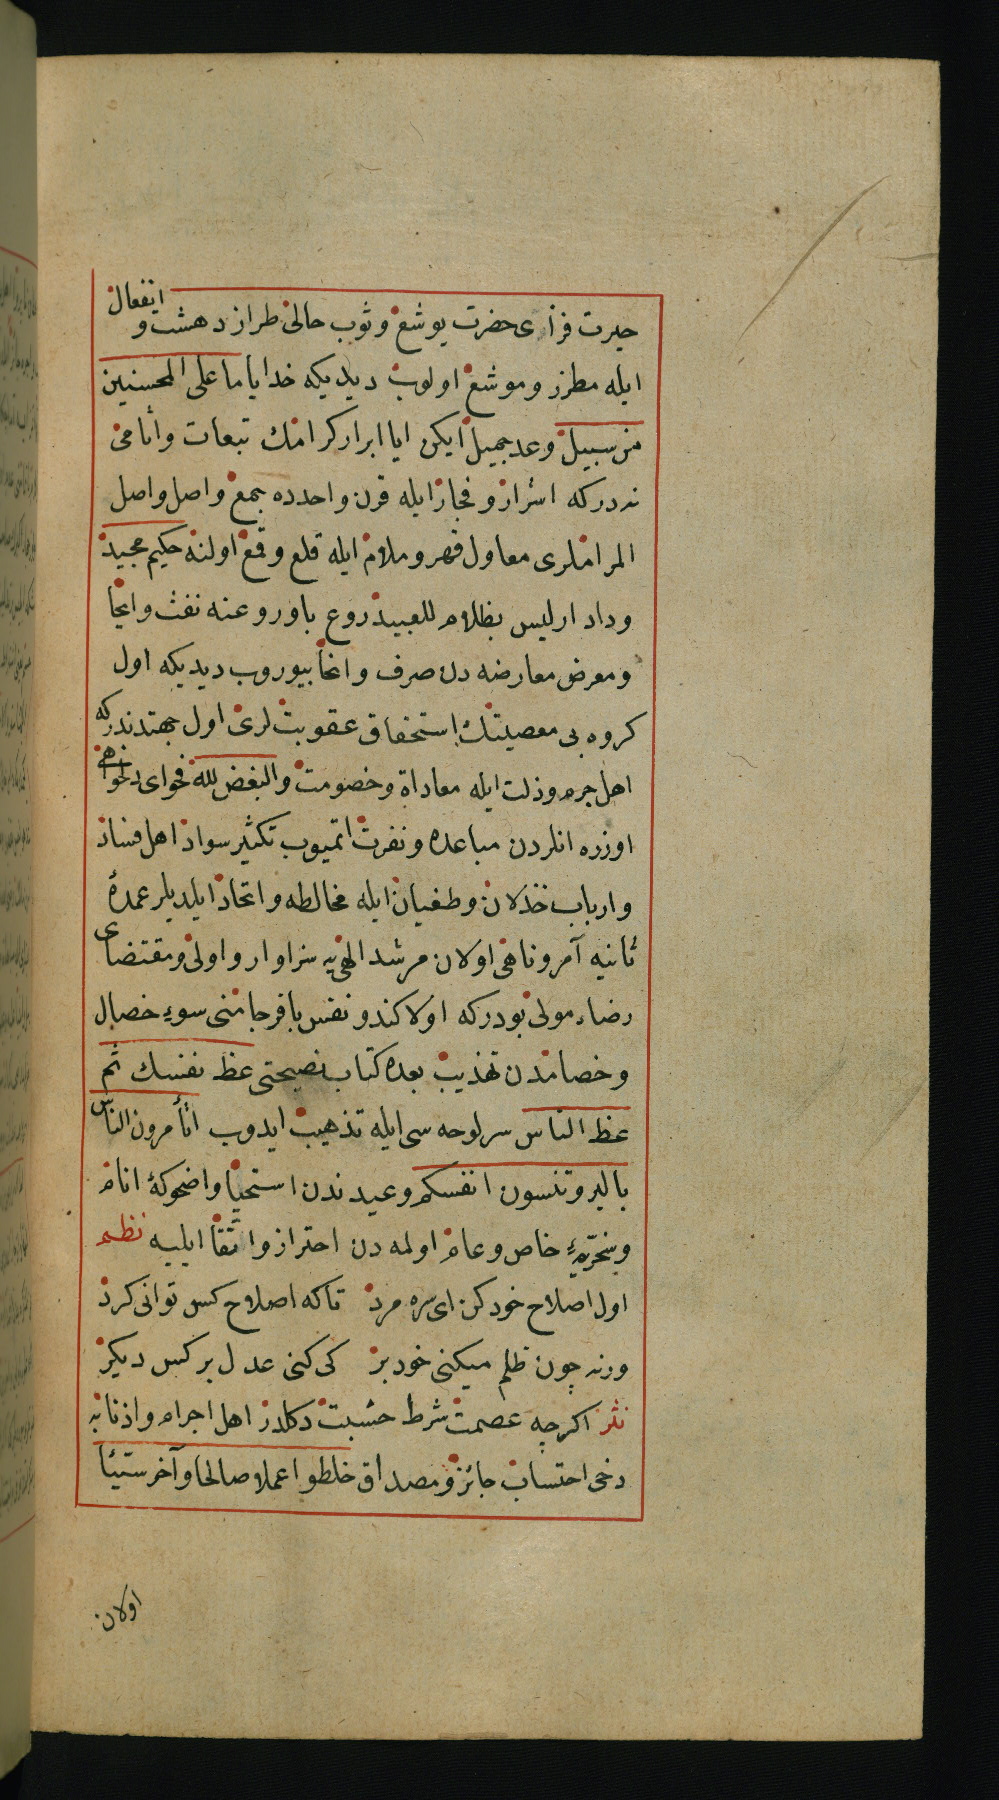 حیرت فزای حضرت یوشع وثوب حالی طراز دهشت و انفعال
ایله مطرز وموشع اولوب دیدیکه خدایا ما علی المحسنین
من سبیل وعد جمیل ایکن ایا ابرار کرامك تبعات وأنامی
نه درکه اشرار و فجار ایله قرن واحدده جمع واصل واصل
المراملری معاول قهر وملام ایله قلع وقمع اولنه حکیم مجید
وداد ار لیس بظلام للعبید روع یاور وعنه نفث وایحا
ومعرض معارضه دن صرف وانحا بیوروب دیدیکه اول
کروه بی معصیتك استحقاق عقوبتلری اول جهتدندرکه
اهل جرم وذلت ایله معاداة وخصومت والبغض لله فحوای دلخواهی
اوزره انلردن مباعده و نفرت اتمیوب تکثیر سواد اهل فساد
وارباب خذلان وطغیان ایله مخالطه واتحاد ایلدیلر عمدهٔ
ثانیه آمر وناهی اولان مرشد الهی یه سزاوار واولی ومقتضای
رضاء مولی بودرکه اولا کندو نفس بافرجامنی سوء خصال
وخصامدن تهذیب بعده کتاب نصیحتی عظ نفسك ثم
عظ الناس سرلوحه سی ایله تذهیب ایدوب اتأمرون الناس
بالبر وتنسون انفسکم وعیدندن استحیا واضحوکهٔ انام
وسخریهٔ خاص وعام اولمه دن احتراز واتقا ایلیه نظم
اول اصلاح خود کن ای سره مرد تاکه اصلاح کس توانی کرد
ورنه چون ظلم میکنی خود بر کی کنی عدل بر کس دیکر
نثر اکرچه عصمت شرط حسبت دکلدر اهل اجرام واذنابه
دخی احتساب جائز ومصداق خلطوا عملا صالحا وآخر سیئا
اولان